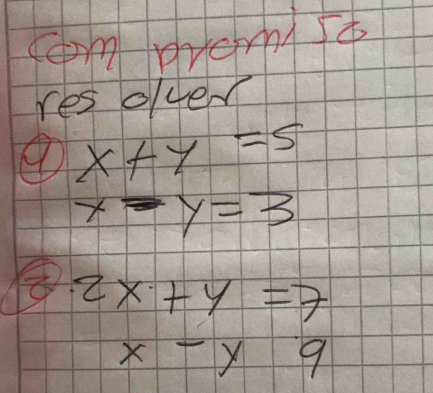 Compromiso
resolver
1) x + y = 5
x - y = 3
2) 2x + y = 7
x - y 9